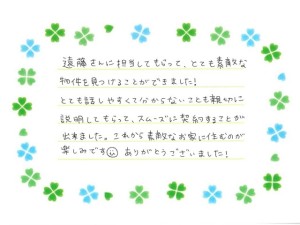 遠藤さんに担当してもらって、とても素敵な
物件を見つけることができました!
とても話しやすくて分からないことも親切に
説明してもらって、スムーズに契約することが
出来ました。これから素敵なお家に住むのが
楽しみです☺ ありがとうございました!